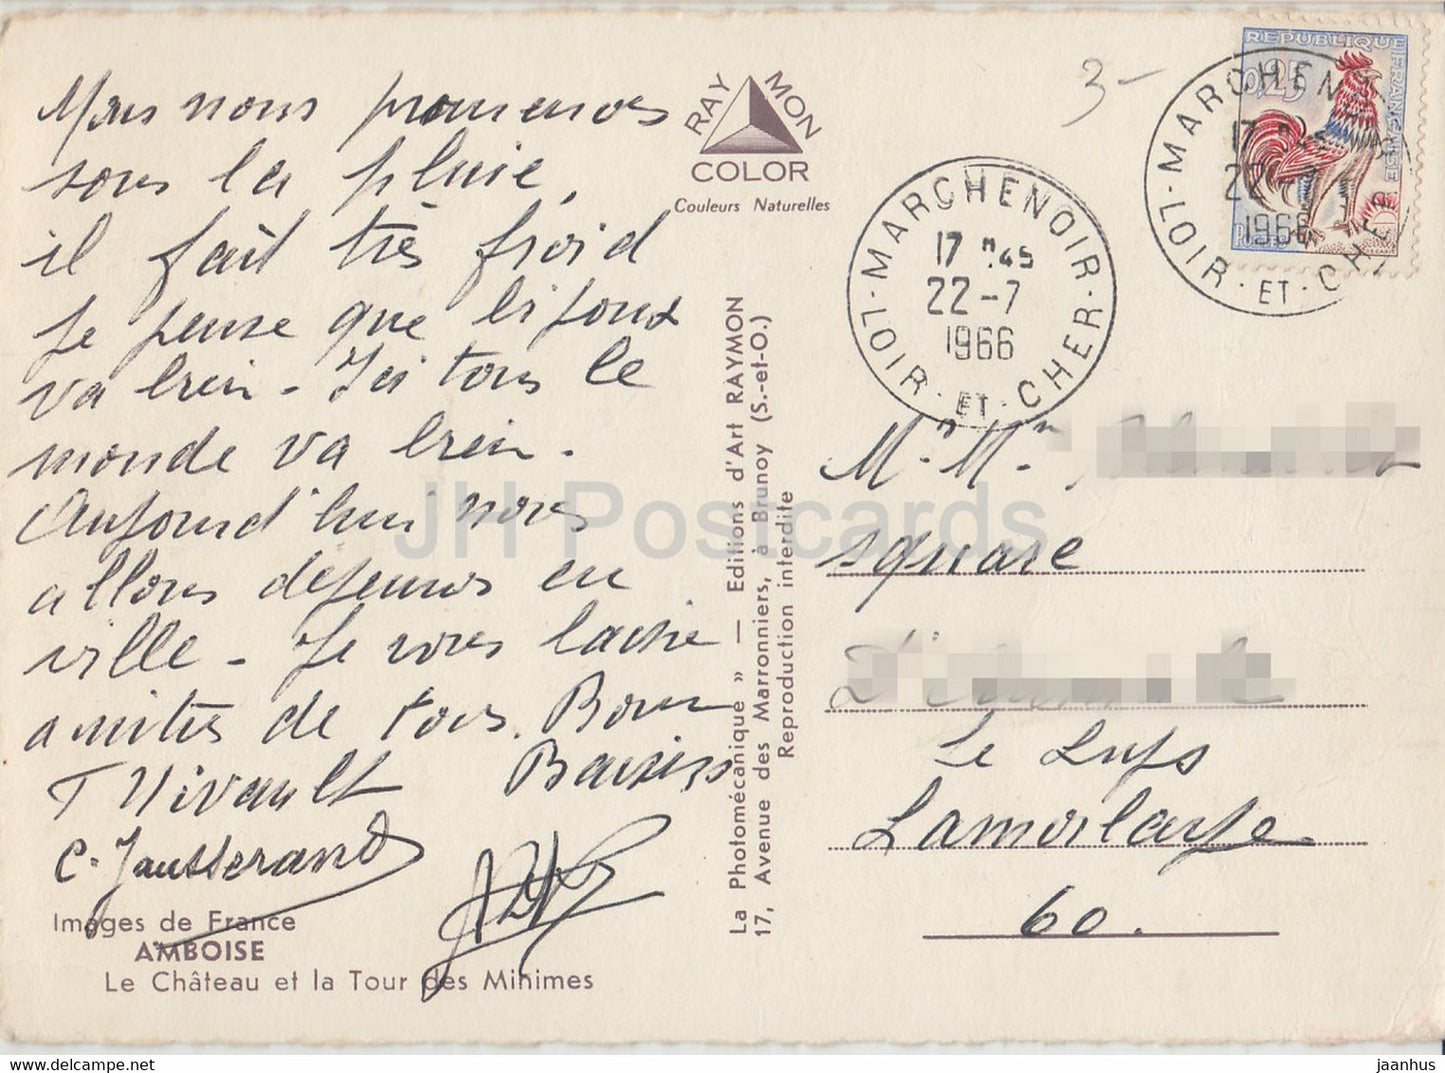 Nous nous promenons
sous la pluie,
il fait très froid
Je pense que
va bien - Ici tous le
monde va bien.
Aujourd'hui nous
allons déjeuner en
ville - Je vous laisse
amitiés de tous. Bons
Baisers
T Nivault
C. Jausserand
Images de France
AMBOISE
Le Château et la Tour des Minimes
RAYMON
COLOR
Couleurs Naturelles
La Photomécanique » — Editions d'Art RAYMON
17, Avenue des Marronniers, à Brunoy (S.-et-O.)
Reproduction interdite
3-
MARCHENOIR
17 H 45
22-7
1966
LOIR - ET - CHER
REPUBLIQUE FRANÇAISE
0,25
POSTES
MARCHENOIR
17 H 45
22-7
1966
LOIR - ET - CHER
Mr. Mme
square
Le Lys
Lamorlaye
60.
JH Postcards
jaanhus